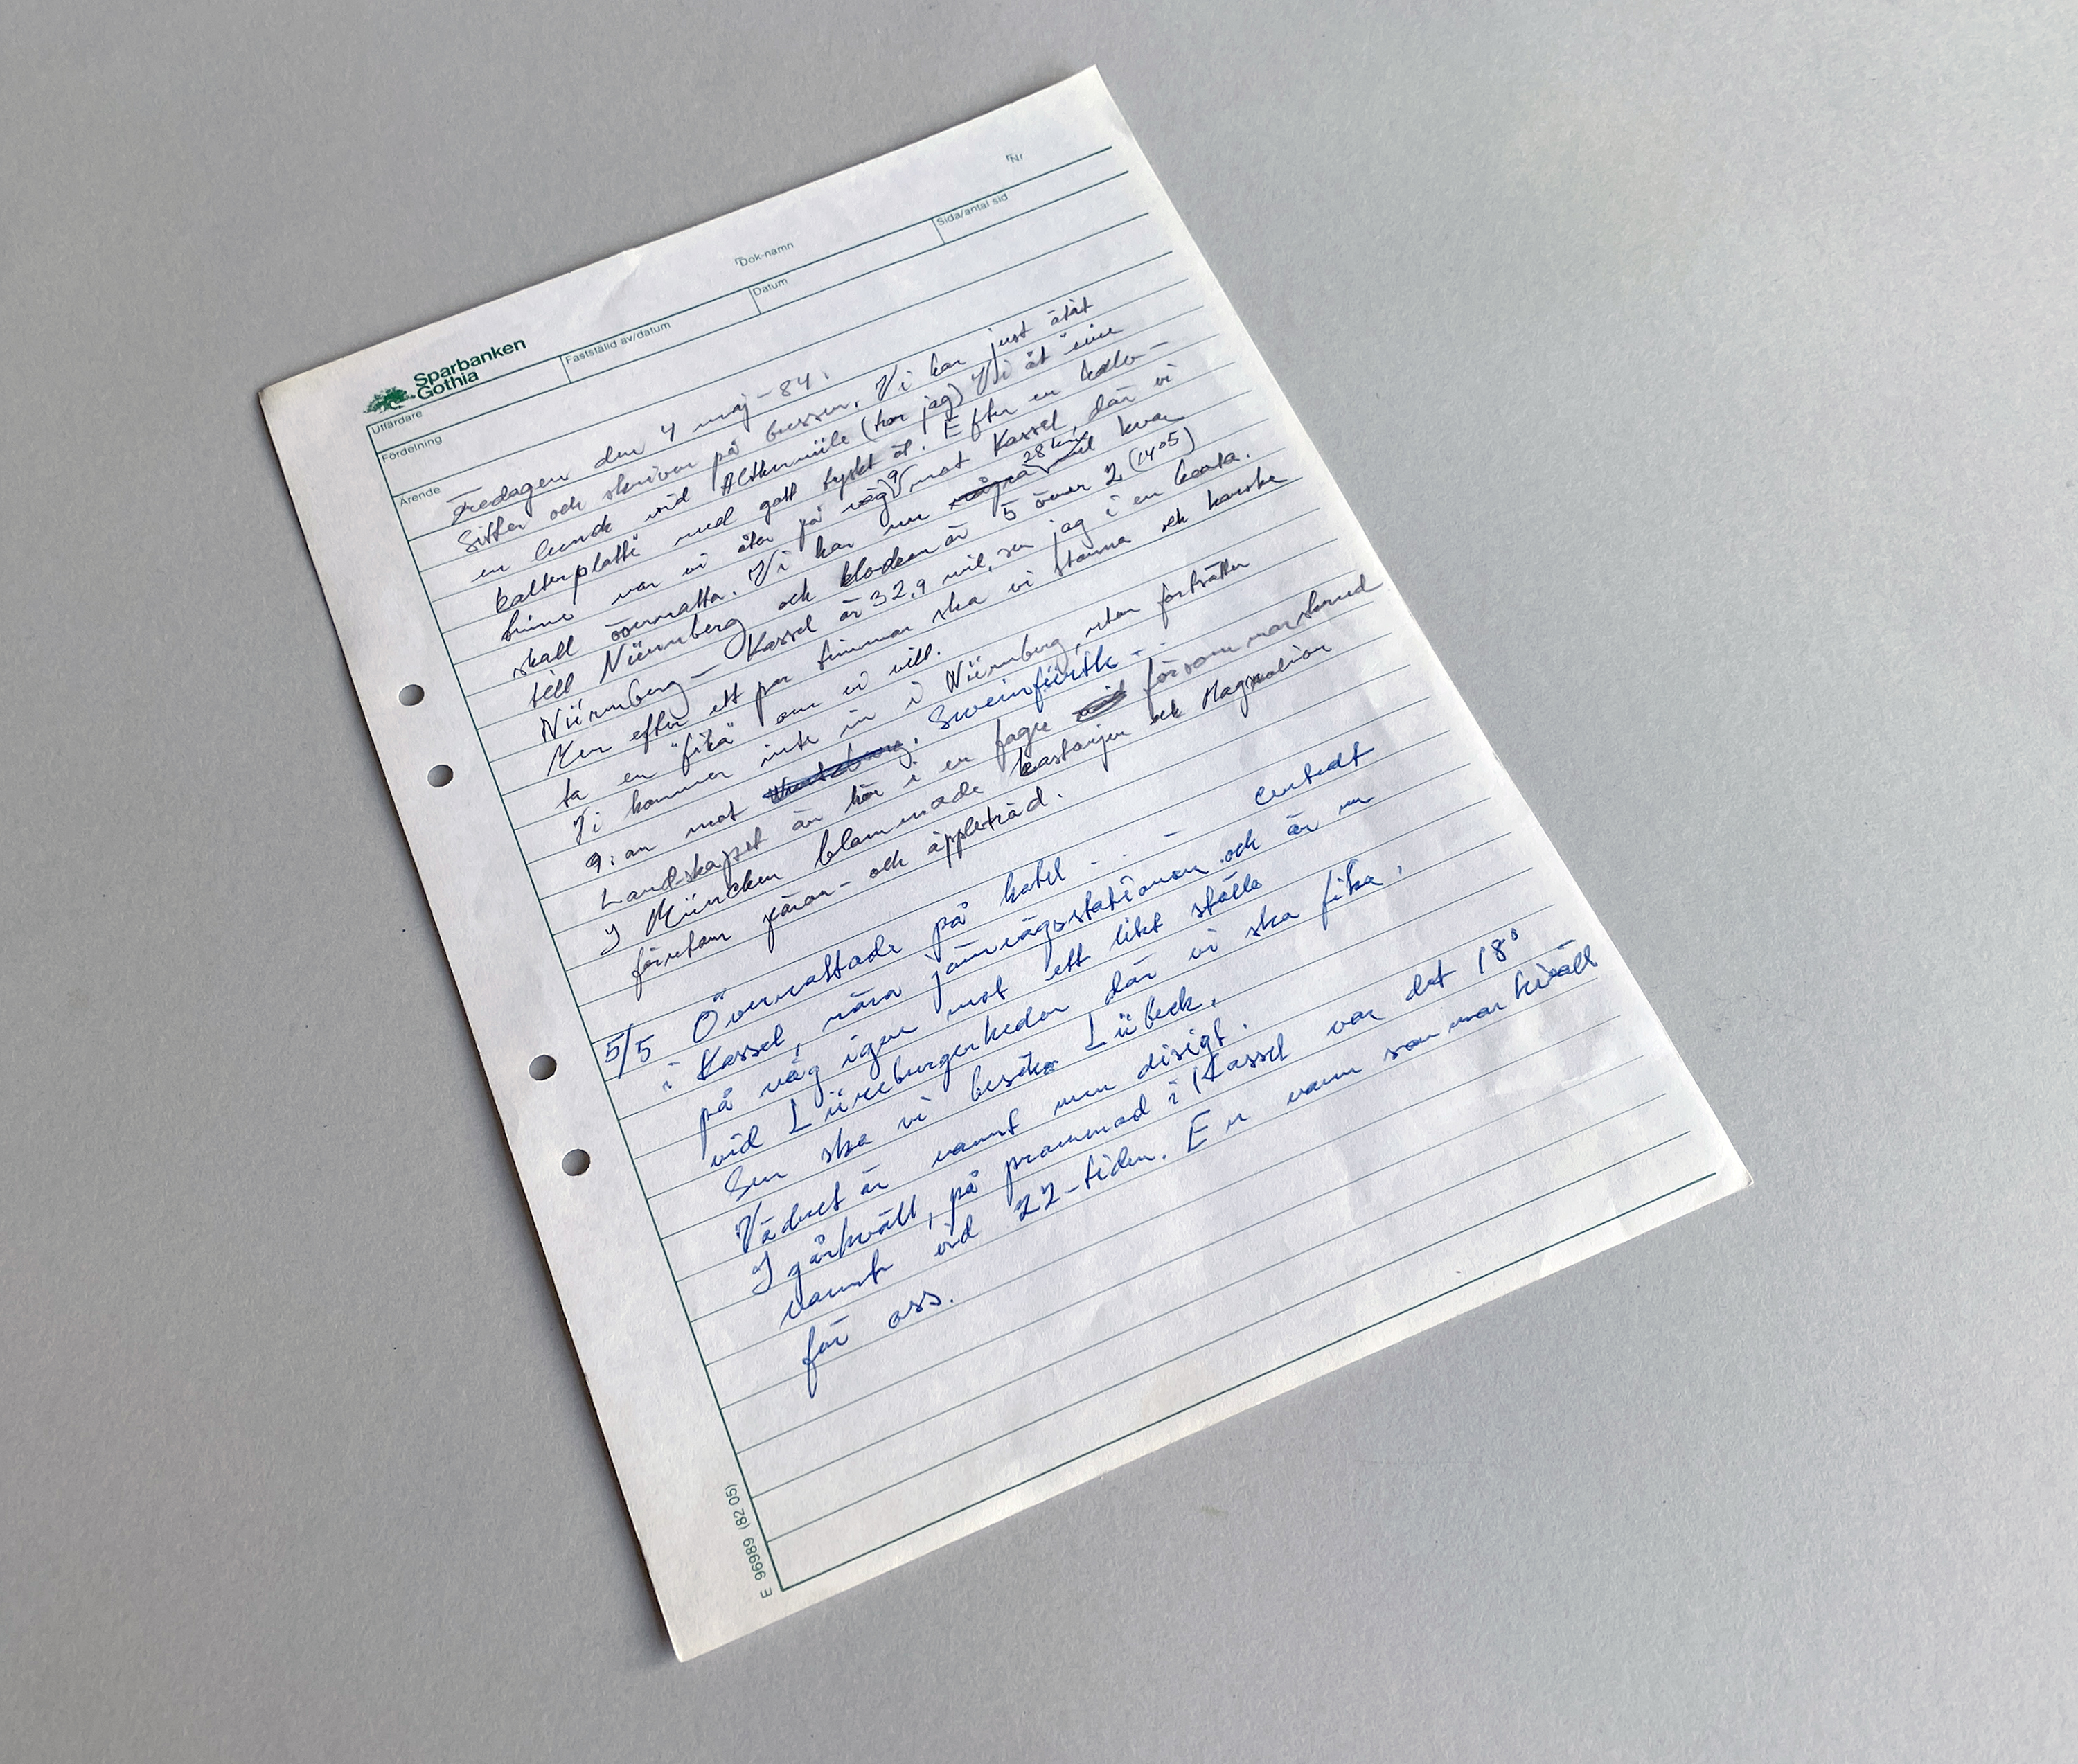 Sparbanken
Gothia
Utfärdare
Fastställd av/datum
Dok-namn
Datum
Nr
Sida/antal sid
Fördelning
Ärende
Fredagen den 4 maj -84.
Sitter och skriver på bussen. Vi har just ätit
en lunch vid Altkermüle (tror jag) Vi åt "eine
kalterplatte" med gott tyskt öl. Efter en halv-
timme var vi åter på väg 9 mot Kassel, där vi
skall övernatta. Vi har nu några mil 28 km kvar
till Nürnberg och klockan är 5 över 2 (1405)
Nürnberg - Kassel är 32,9 mil, ser jag i en karta.
Men efter ett par timmar ska vi stanna och kanske
ta en "fika" om vi vill.
Vi kommer inte in i Nürnberg, utan fortsätter
9:an mot Sweinfürth -
Landskapet är här i en fager försommarskrud
I München blommade kastanjer och Magnolior
förutom päron- och äppleträd.
5/5 Övernattade på hotel . . - centralt
i Kassel, nära järnvägsstationen och är nu
på väg igen mot ett likt ställe
vid Lüneburgerheden där vi ska fika.
Sen ska vi besöka Lübeck.
Vädret är varmt men disigt.
I gårkväll, på promenad i Kassel var det 18°
varmt vid 22-tiden. En varm sommarkväll
för oss.
E 96989 (82 05)